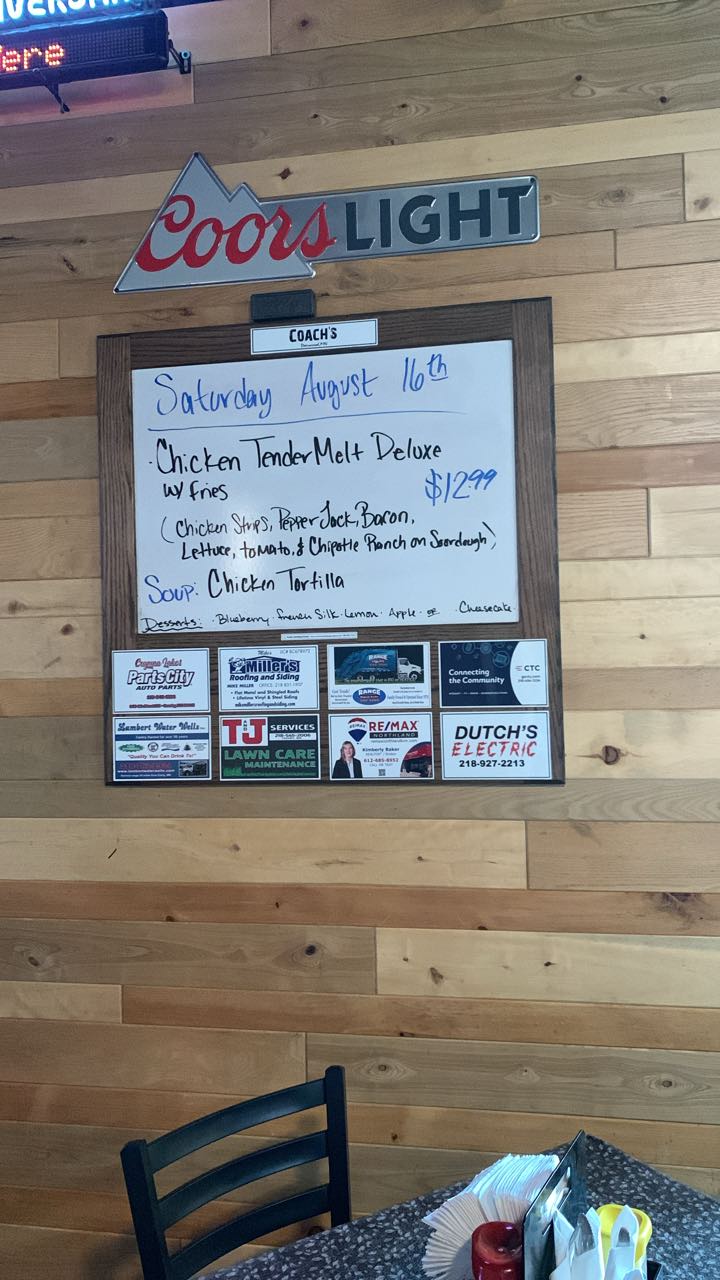 ere
Coors LIGHT
COACH'S
Saturday August 16th
Chicken Tender Melt Deluxe
w/ fries
$12.99
(Chicken Strips, Pepper Jack, Bacon,
Lettuce, tomato, & Chipotle Ranch on Sourdough)
Soup: Chicken Tortilla
Desserts: Blueberry · French Silk · Lemon · Apple · or · Cheesecake
Cuyuna Lakes
Parts City
AUTO PARTS
Mike's
Miller's
Roofing and Siding
MIKE MILLER
• Flat Metal and Shingled Roofs
• Lifetime Vinyl & Steel Siding
RANGE
Connecting
the Community
CTC
Lambert Water Wells
"Quality You Can Drink To!"
T&J SERVICES
218-546-2006
LAWN CARE
MAINTENANCE
RE/MAX
NORTHLAND
Kimberly Baker
612-685-8952
DUTCH'S
ELECTRIC
218-927-2213